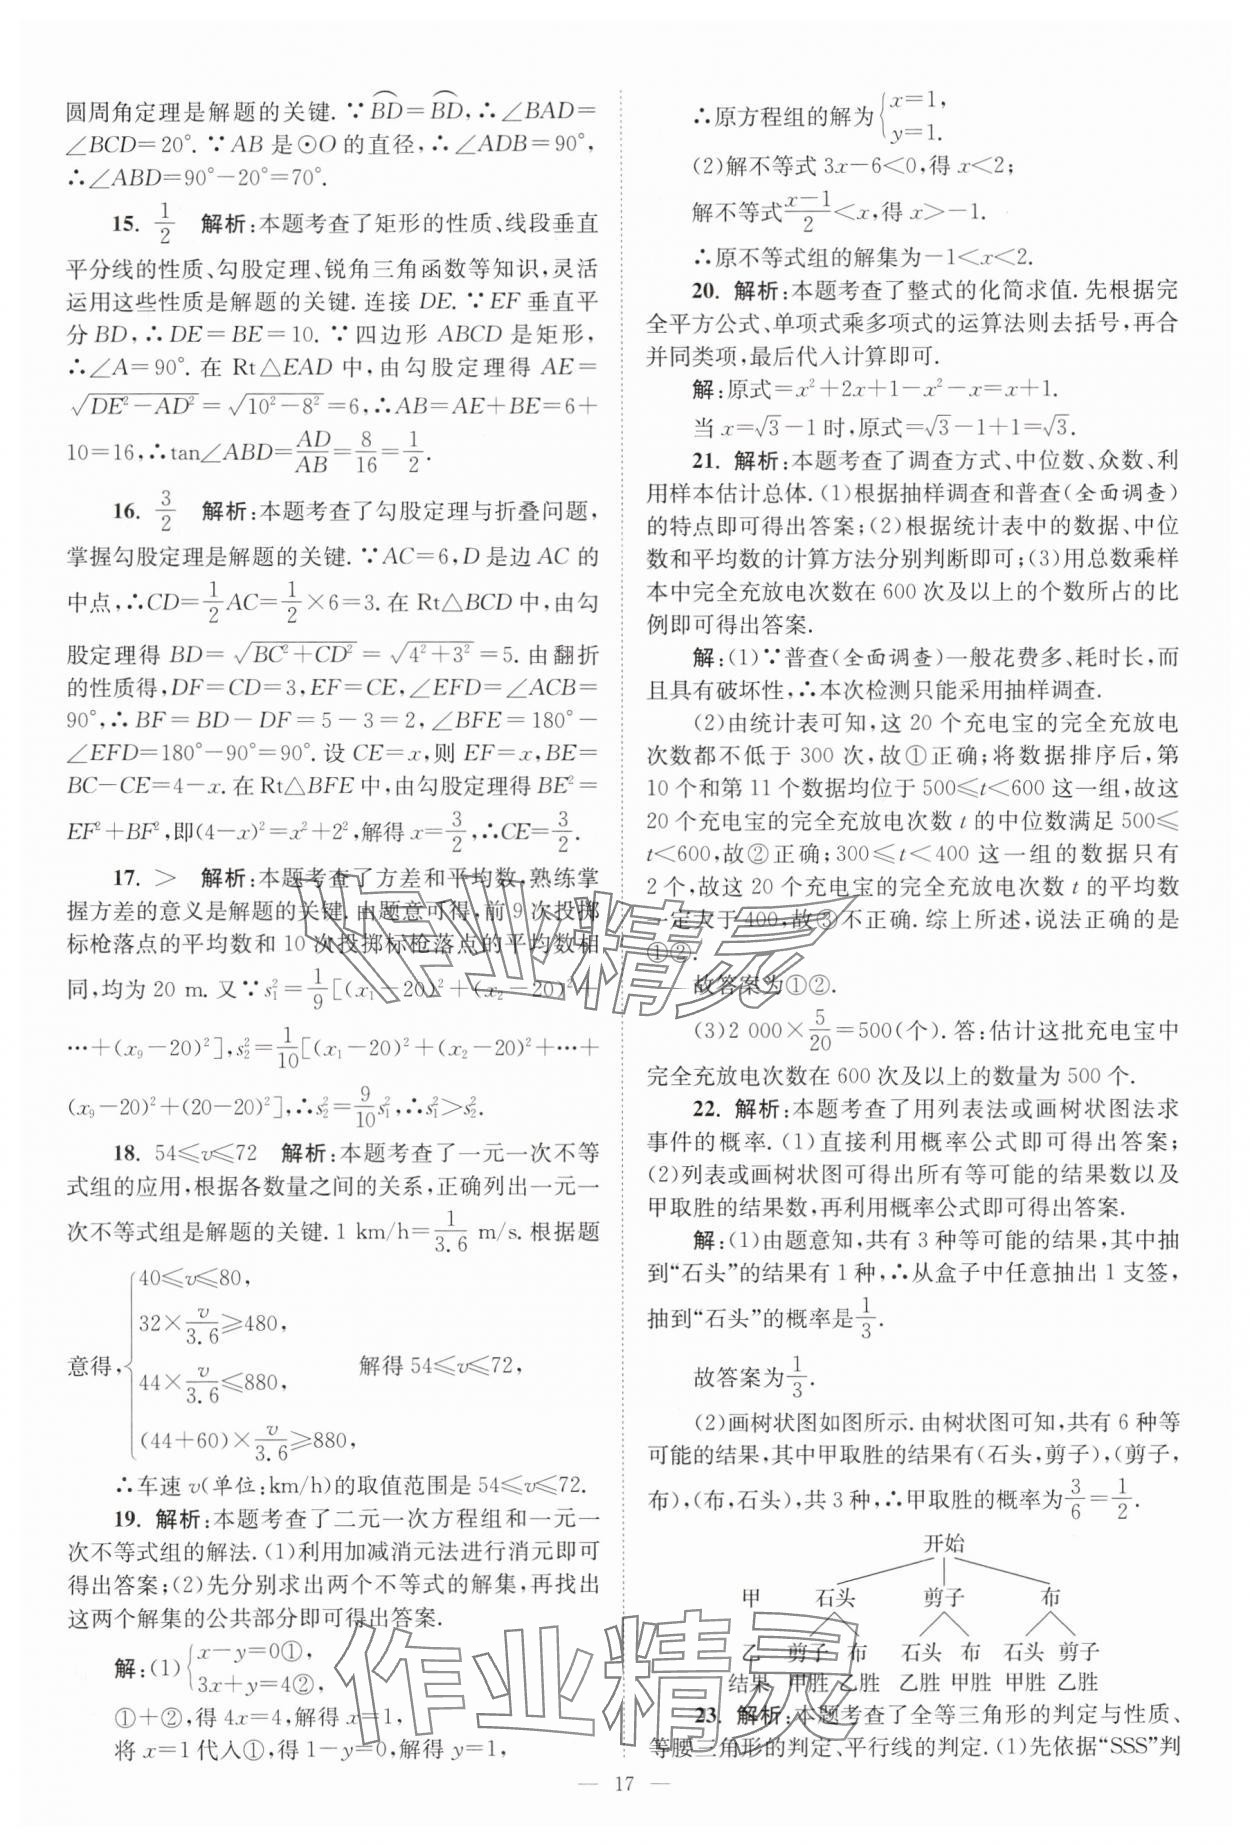 圆周角定理是解题的关键.∵BD=BD,∴∠BAD=
∠BCD=20°.∵AB 是⊙O 的直径,∴∠ADB=90°,
∴∠ABD=90°-20°=70°.
15. 1/2 解析:本题考查了矩形的性质、线段垂直
平分线的性质、勾股定理、锐角三角函数等知识,灵活
运用这些性质是解题的关键.连接 DE.∵EF 垂直平
分BD,∴DE=BE=10.∵四边形 ABCD 是矩形,
∴∠A=90°.在 Rt△EAD 中,由勾股定理得 AE=
√(DE²-AD²)=√(10²-8²)=6,∴AB=AE+BE=6+
10=16,∴tan∠ABD=AD/AB=8/16=1/2.
16. 3/2 解析:本题考查了勾股定理与折叠问题,
掌握勾股定理是解题的关键.∵AC=6,D 是边 AC 的
中点,∴CD=1/2AC=1/2×6=3.在 Rt△BCD 中,由勾
股定理得 BD=√(BC²+CD²)=√(4²+3²)=5.由翻折
的性质得,DF=CD=3,EF=CE,∠EFD=∠ACB=
90°,∴BF=BD-DF=5-3=2,∠BFE=180°-
∠EFD=180°-90°=90°.设 CE=x,则 EF=x,BE=
BC-CE=4-x.在Rt△BFE 中,由勾股定理得 BE²=
EF²+BF²,即(4-x)²=x²+2²,解得 x=3/2,∴CE=3/2.
17. > 解析:本题考查了方差和平均数,熟练掌
握方差的意义是解题的关键.由题意可得,前 9 次投掷
标枪落点的平均数和 10 次投掷标枪落点的平均数相
同,均为 20 m.又∵s₁²=1/9[(x₁-20)²+(x₂-20)²+
…+(x₉-20)²],s₂²=1/10[(x₁-20)²+(x₂-20)²+…+
(x₉-20)²+(20-20)²],∴s₂²=9/10s₁²,∴s₁²>s₂².
18. 54≤v≤72 解析:本题考查了一元一次不等
式组的应用,根据各数量之间的关系,正确列出一元一
次不等式组是解题的关键.1 km/h=1/3.6 m/s.根据题
意得,{40≤v≤80,
32×v/3.6≥480,
44×v/3.6≤880,
(44+60)×v/3.6≥880, 解得 54≤v≤72,
∴车速 v(单位:km/h)的取值范围是 54≤v≤72.
19. 解析:本题考查了二元一次方程组和一元一
次不等式组的解法.(1)利用加减消元法进行消元即可
得出答案;(2)先分别求出两个不等式的解集,再找出
这两个解集的公共部分即可得出答案.
解:(1){x-y=0①,
3x+y=4②,
①+②,得 4x=4,解得 x=1,
将 x=1代入①,得 1-y=0,解得 y=1,
∴原方程组的解为{x=1,
y=1.
(2)解不等式 3x-6<0,得 x<2;
解不等式(x-1)/2<x,得 x>-1.
∴原不等式组的解集为-1<x<2.
20. 解析:本题考查了整式的化简求值.先根据完
全平方公式、单项式乘多项式的运算法则去括号,再合
并同类项,最后代入计算即可.
解:原式=x²+2x+1-x²-x=x+1.
当 x=√3-1时,原式=√3-1+1=√3.
21. 解析:本题考查了调查方式、中位数、众数、利
用样本估计总体.(1)根据抽样调查和普查(全面调查)
的特点即可得出答案;(2)根据统计表中的数据、中位
数和平均数的计算方法分别判断即可;(3)用总数乘样
本中完全充放电次数在 600 次及以上的个数所占的比
例即可得出答案.
解:(1)∵普查(全面调查)一般花费多、耗时长,而
且具有破坏性,∴本次检测只能采用抽样调查.
(2)由统计表可知,这 20 个充电宝的完全充放电
次数都不低于 300 次,故①正确;将数据排序后,第
10 个和第 11 个数据均位于 500≤t<600 这一组,故这
20 个充电宝的完全充放电次数 t 的中位数满足 500≤
t<600,故②正确;300≤t<400 这一组的数据只有
2 个,故这 20 个充电宝的完全充放电次数 t 的平均数
一定大于 400,故③不正确.综上所述,说法正确的是
①②.
故答案为①②.
(3)2 000×5/20=500(个).答:估计这批充电宝中
完全充放电次数在 600 次及以上的数量为 500 个.
22. 解析:本题考查了用列表法或画树状图法求
事件的概率.(1)直接利用概率公式即可得出答案;
(2)列表或画树状图可得出所有等可能的结果数以及
甲取胜的结果数,再利用概率公式即可得出答案.
解:(1)由题意知,共有 3 种等可能的结果,其中抽
到“石头”的结果有 1 种,∴从盒子中任意抽出 1 支签,
抽到“石头”的概率是1/3.
故答案为1/3.
(2)画树状图如图所示.由树状图可知,共有 6 种等
可能的结果,其中甲取胜的结果有(石头,剪子),(剪子,
布),(布,石头),共 3 种,∴甲取胜的概率为3/6=1/2.
开始
甲 石头 剪子 布
乙 剪子 布 石头 布 石头 剪子
结果 甲胜 乙胜 乙胜 甲胜 甲胜 乙胜
23. 解析:本题考查了全等三角形的判定与性质、
等腰三角形的判定、平行线的判定.(1)先依据“SSS”判
— 17 —
作业精灵
作业精灵